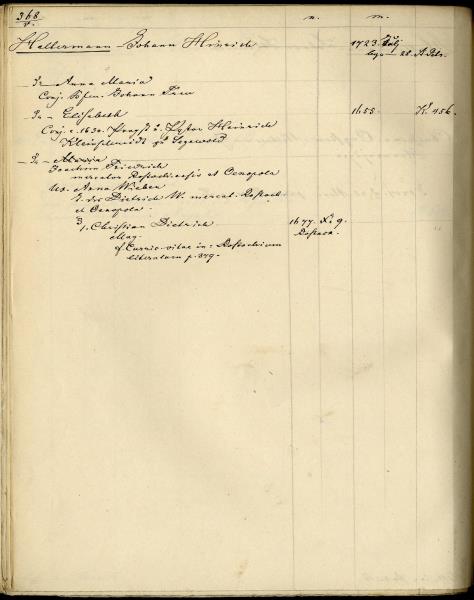 368
v.
n. m.
Heltermann Johann Hinrich 1723. Julj
begr. 28. St. Petr.
Anna Maria
Conj. Johann
Elisabeth 1655. K. 456.
Conj. c. 1630. Propst z. Pastor Heinrich
Kleinschmidt zu Segewold
Maria
Joachim Friedrich
mercator Rostochiensis et Oenopola
Ux. Anna Wieber
T. des Dietrich W. mercat. Rostoch
et Oenopola.
3
1. Christian Dietrich 1677. X. 9.
Mag. Rostock.
cf. Curric. vitae in: Rostochium
literatum p. 379.